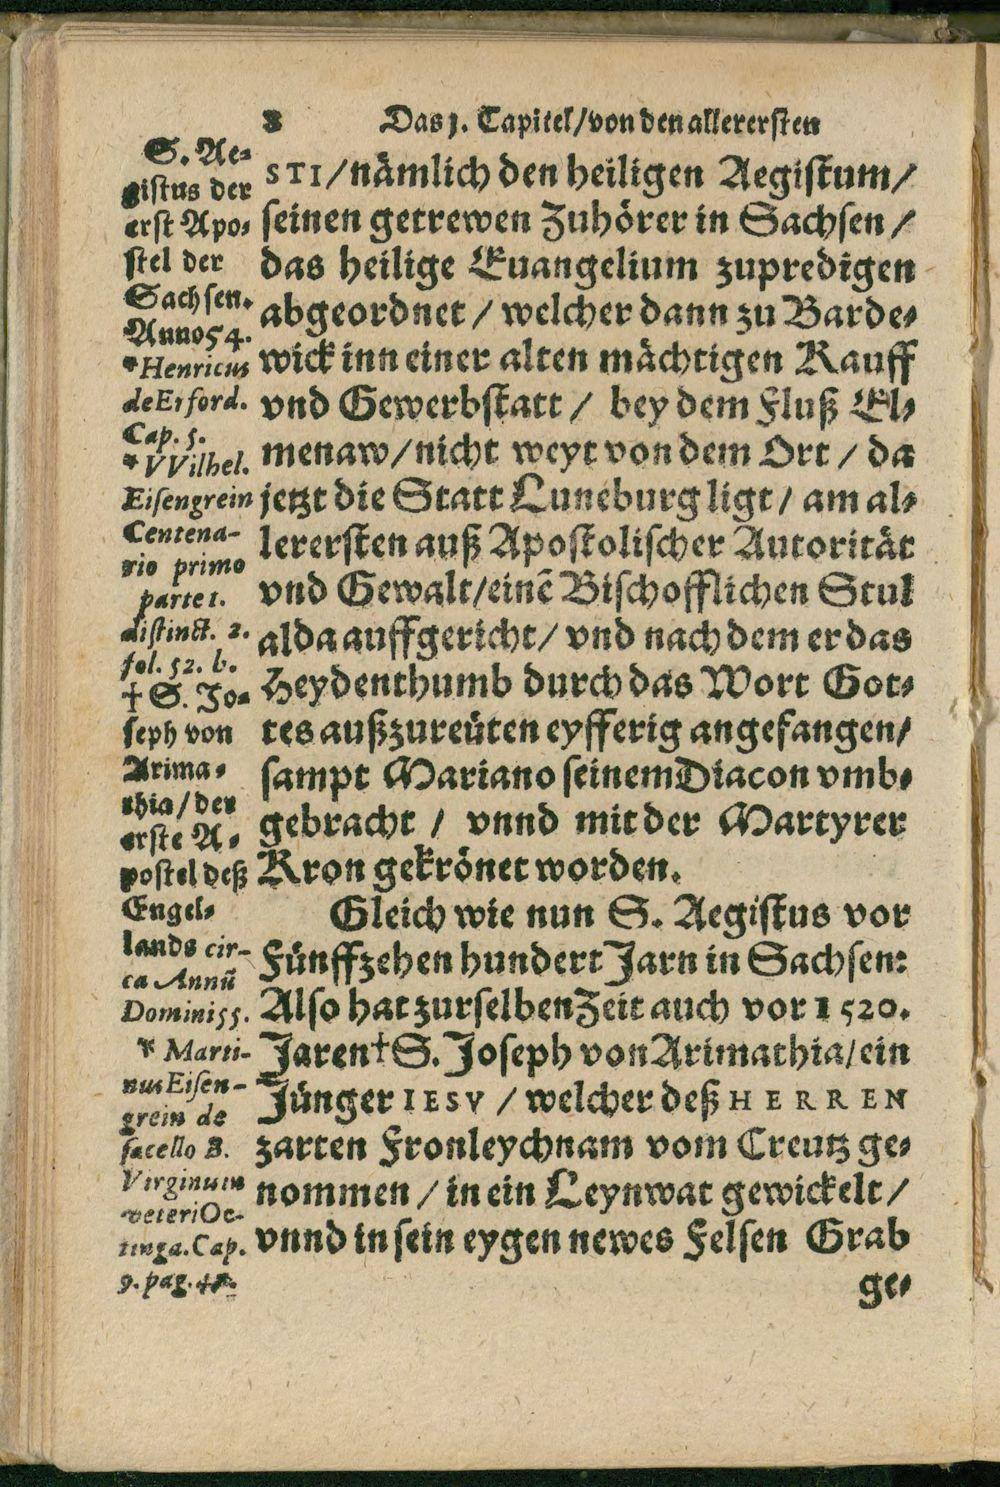 8 Das 1. Capitel/von den allerersten
S. Ae⸗
gistus der
erst Apo⸗
stel der
Sachsen.
Anno 54.
*Henricus
de Erford.
Cap. 5.
* VVilhel.
Eisengrein
Centena-
rio primo
parte 1.
distinct. 2.
fol. 52. b.
† S. Jo⸗
seph von
Arima⸗
thia/der
erste A⸗
postel deß
Engel⸗
lands cir-
ca Annū
Domini 55.
* Marti-
nus Eisen-
grein de
sacello B.
Virginum
veteri Oe-
tinga. Cap.
9. pag.
STI/nämlich den heiligen Aegistum/
seinen getrewen Zuhörer in Sachsen/
das heilige Euangelium zupredigen
abgeordnet/welcher dann zu Barde⸗
wick inn einer alten mächtigen Kauff
vnd Gewerbstatt/ bey dem Fluß El⸗
menaw/nicht weyt von dem Ort/da
jetzt die Statt Luneburg ligt/am al⸗
lerersten auß Apostolischer Autorität
vnd Gewalt/einē Bischofflichen Stul
alda auffgericht/vnd nach dem er das
Heydenthumb durch das Wort Got⸗
tes außzureüten eyfferig angefangen/
sampt Mariano seinem Diacon vmb⸗
gebracht/ vnnd mit der Martyrer
Kron gekrönet worden.
Gleich wie nun S. Aegistus vor
Fünffzehen hundert Jarn in Sachsen:
Also hat zur selben Zeit auch vor 1520.
Jaren † S. Joseph von Arimathia/ein
Jünger IESV/welcher deß HERREN
zarten Fronleychnam vom Creutz ge⸗
nommen/in ein Leynwat gewickelt/
vnnd in sein eygen newes Felsen Grab
ge⸗